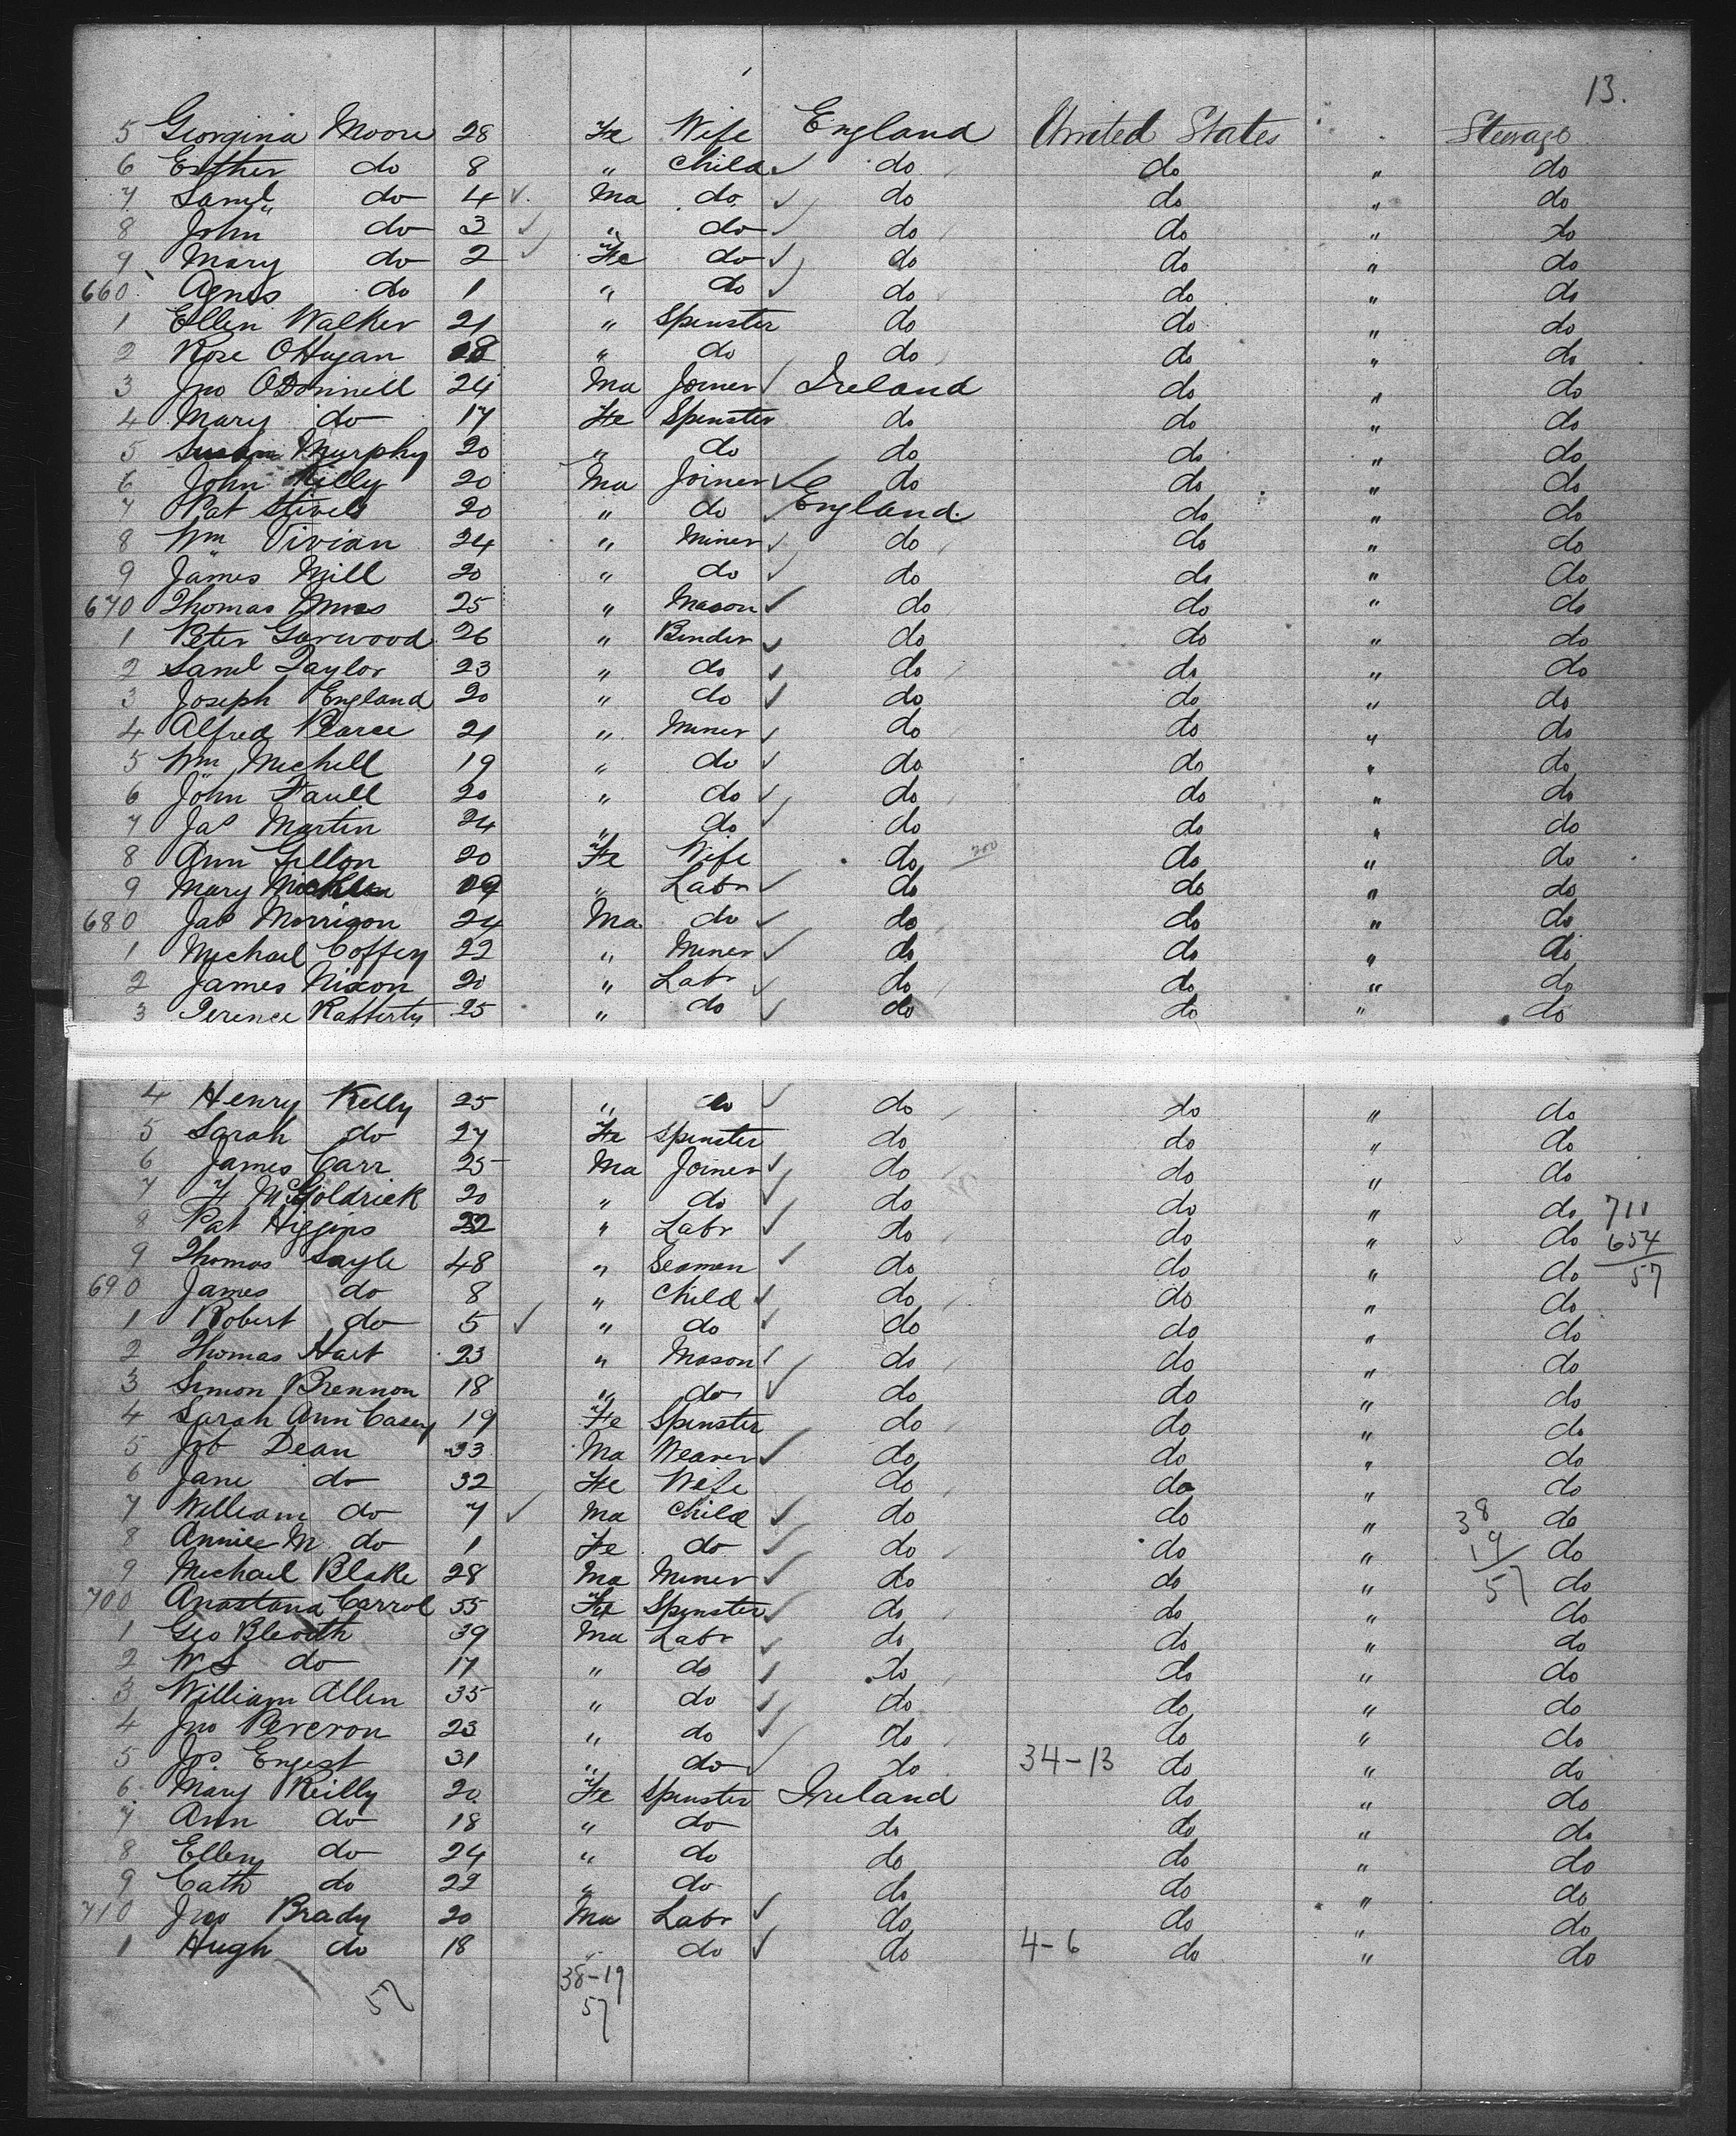 13.
5 Georgina Moore 28 Fe Wife England United States Steerage
6 Esther do 8 " Child ✓ do do " do
7 Saml do 4 ✓ Ma do ✓ do do " do
8 John do 3 ✓ " do ✓ do do " do
9 Mary do 2 ✓ Fe do ✓ do do " do
660 Agnes do 1 " do ✓ do do " do
1 Ellen Walker 21 " Spenster do do " do
2 Rose OHagan 18 " do do do " do
3 Jno ODonnell 24 Ma Joiner ✓ Ireland do " do
4 Mary do 17 Fe Spenster do do " do
5 Murphy 20 " do do do " do
6 John Killy 20 Ma Joiner ✓ do do " do
7 Pat 20 " do ✓ England. do " do
8 Wm Vivian 24 " Miner ✓ do do " do
9 James Mill 20 " do ✓ do do " do
670 Thomas 25 " Mason ✓ do do " do
1 Peter Garwood 26 " Binder ✓ do do " do
2 Saml Taylor 23 " do ✓ do do " do
3 Joseph England 20 " do ✓ do do " do
4 Alfred Pearce 21 " Miner ✓ do do " do
5 Wm Michell 19 " do ✓ do do " do
6 John Faull 20 " do ✓ do do " do
7 Jas Martin 24 " do ✓ do do " do
8 Ann Gillon 20 Fe Wife do 200 do " do
9 Mary 19 " Labr ✓ do do " do
680 Jas Morrison 24 Ma do ✓ do do " do
1 Michael Coffey 22 " Miner ✓ do do " do
2 James Nixon 20 " Labr ✓ do do " do
3 Terence Rafferty 25 " do ✓ do do " do
4 Henry Kelly 25 " do ✓ do do " do
5 Sarah do 27 Fe Spenster do do " do
6 James Carr 25 Ma Joiner ✓ do do " do
7 F McGoldrick 20 " do ✓ do do " do 711
8 Pat Higgins 22 " Labr ✓ do do " do 654
9 Thomas Sayle 48 " Seaman ✓ do do " do 57
690 James do 8 " Child ✓ do do " do
1 Robert do 5 ✓ " do ✓ do do " do
2 Thomas Hart 23 " Mason ✓ do do " do
3 Simon Brennon 18 " do ✓ do do " do
4 Sarah Ann Casey 19 Fe Spenster do do " do
5 Job Dean 33 Ma Weaver ✓ do do " do
6 Jane do 32 Fe Wife do do " do
7 William do 7 ✓ Ma Child ✓ do do " 38 do
8 Annie M do 1 Fe do ✓ do do " 19 do
9 Michael Blake 28 Ma Miner ✓ do do " 57 do
700 Carrol 55 Fe Spenster ✓ do do " do
1 Geo 39 Ma Labr ✓ do do " do
2 W S do 17 " do ✓ do do " do
3 William Allen 35 " do ✓ do do " do
4 Jno 23 " do ✓ do do " do
5 Jos 31 " do ✓ do 34-13 do " do
6 Mary Reilly 20 Fe Spenster Ireland do " do
7 Ann do 18 " do do do " do
8 Ellen do 24 " do do do " do
9 Cath do 22 " do do do " do
710 Jno Brady 20 Ma Labr ✓ do do " do
1 Hugh do 18 " do ✓ do 4-6 do " do
57 38-19
57